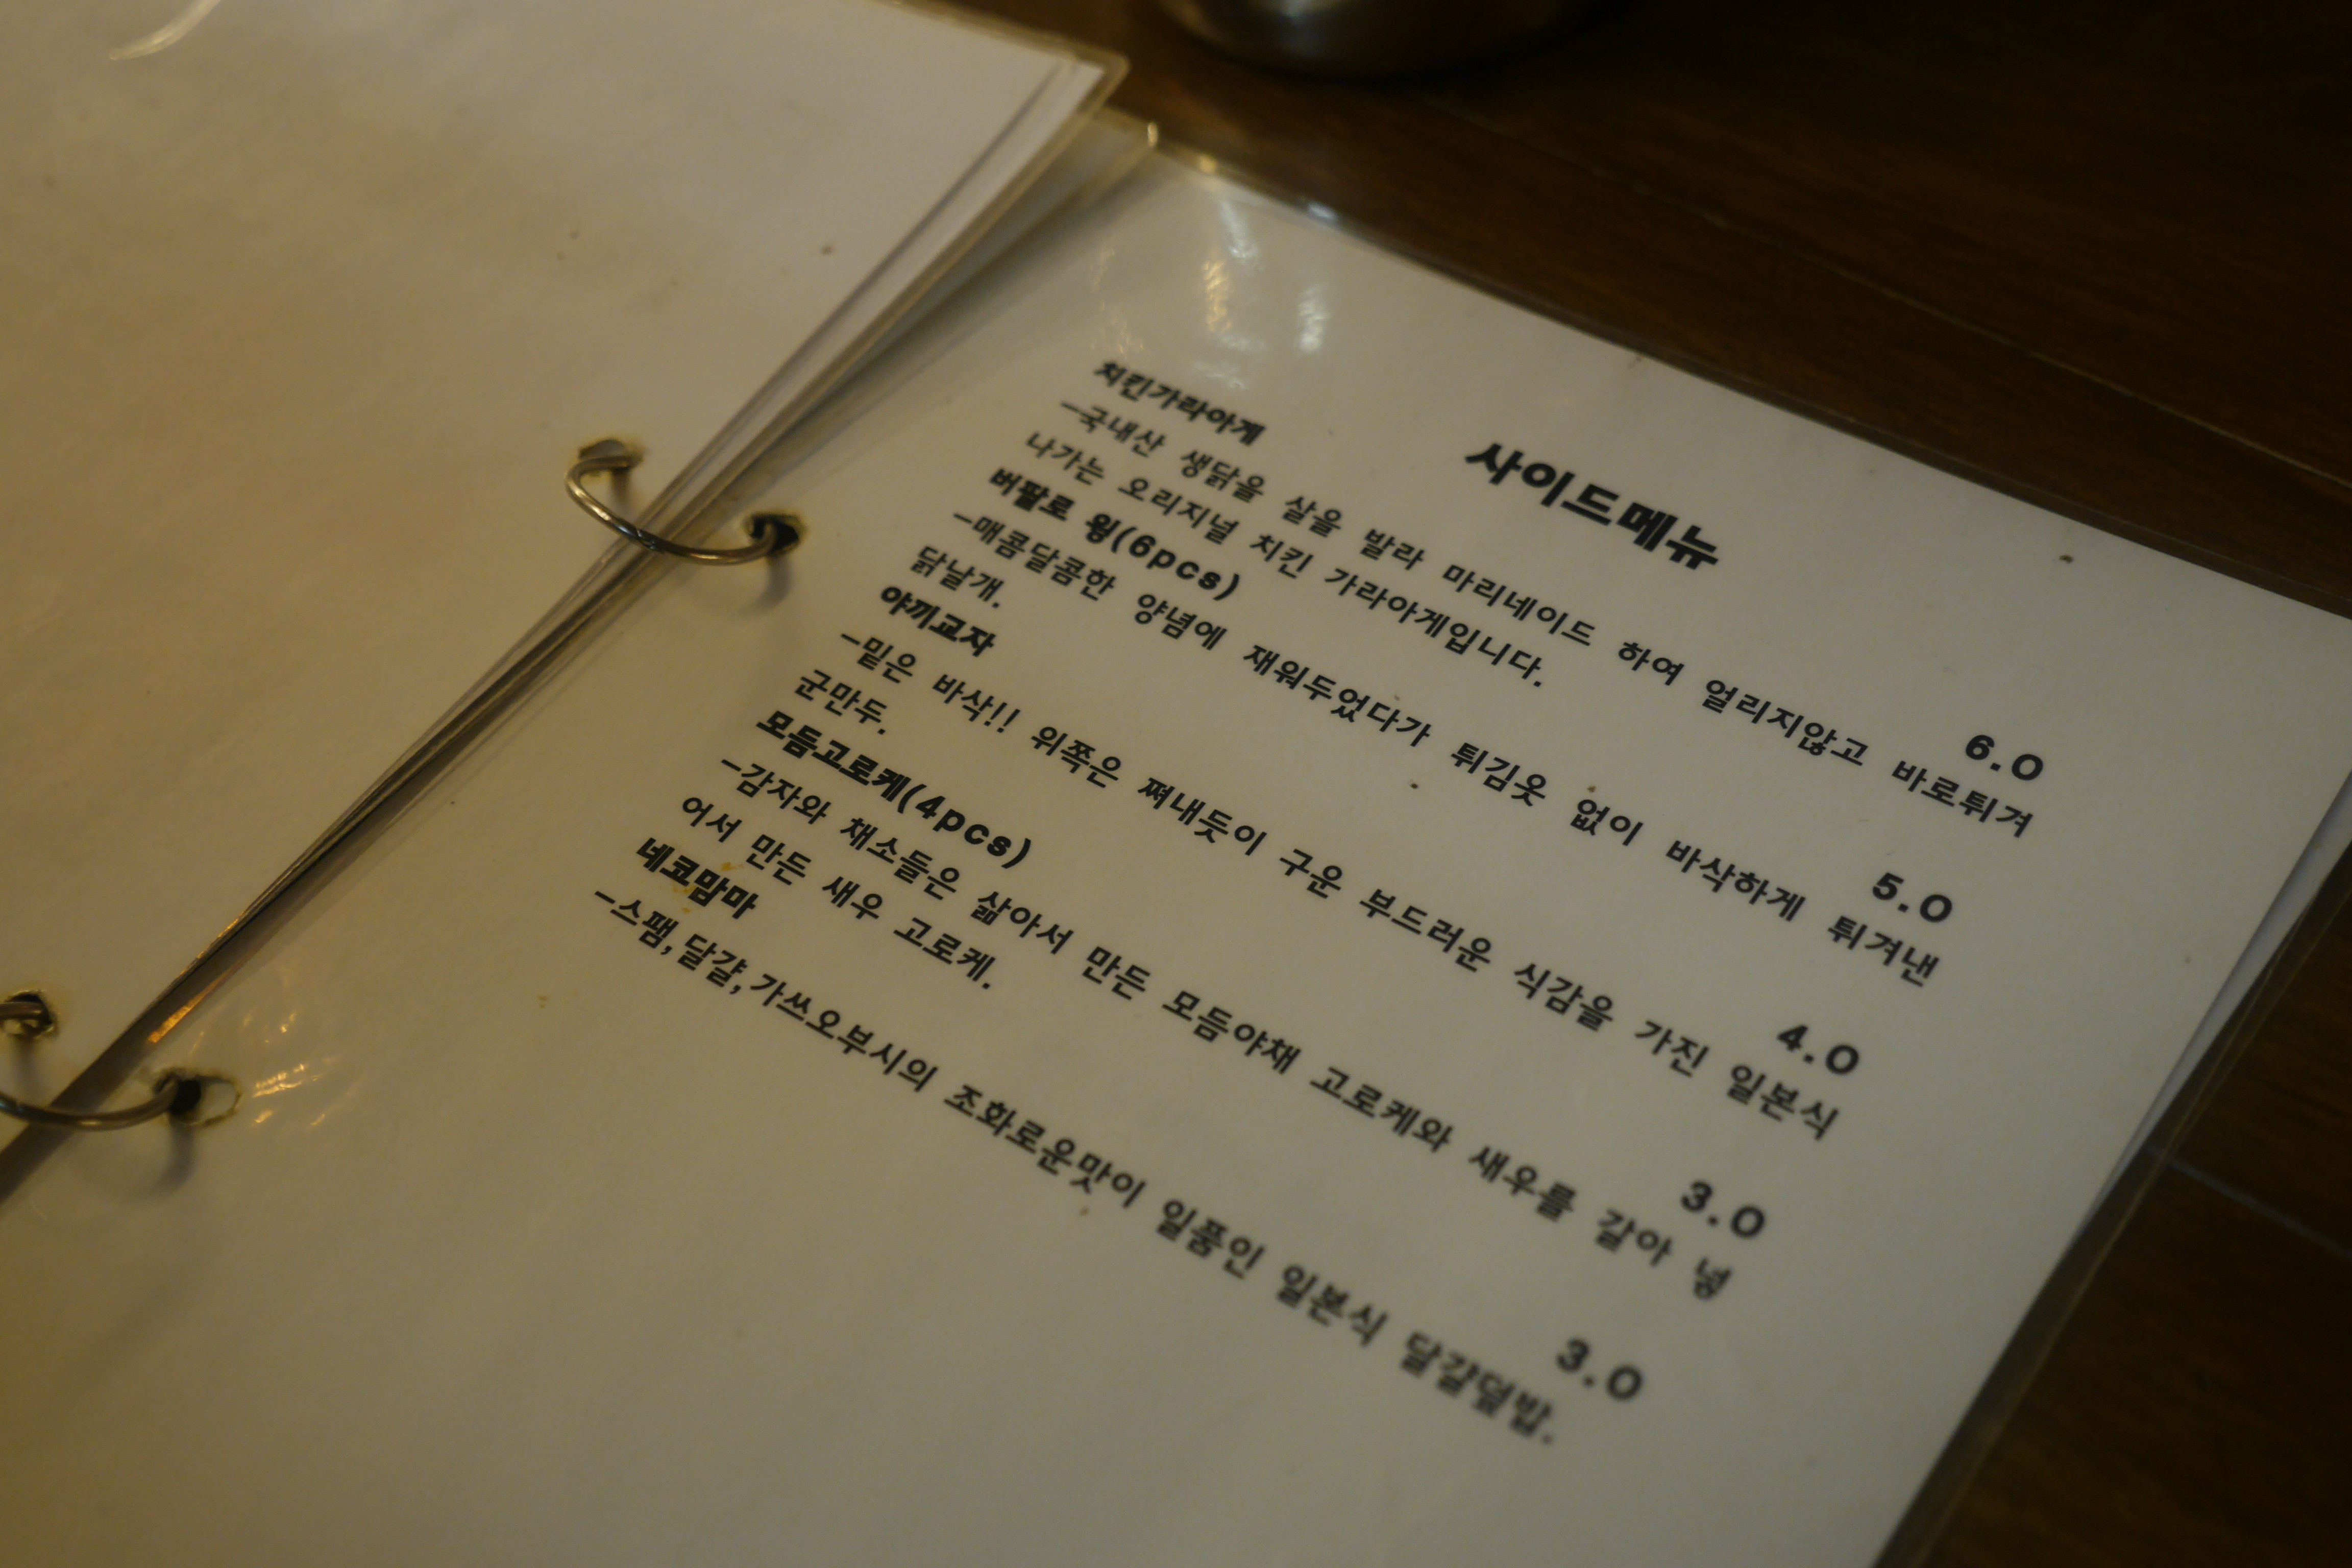 사이드메뉴
치킨가라아게 6.0
-국내산 생닭을 살을 발라 마리네이드 하여 얼리지않고 바로튀겨
나가는 오리지널 치킨 가라아게입니다.
버팔로 윙(6pcs) 5.0
-매콤달콤한 양념에 재워두었다가 튀김옷 없이 바삭하게 튀겨낸
닭날개.
야끼교자 4.0
-밑은 바삭!! 위쪽은 쪄내듯이 구운 부드러운 식감을 가진 일본식
군만두.
모듬고로케(4pcs) 3.0
-감자와 채소들은 삶아서 만든 모듬야채 고로케와 새우를 갈아 넣
어서 만든 새우 고로케.
네코맘마 3.0
-스팸,달걀,가쓰오부시의 조화로운맛이 일품인 일본식 달걀덮밥.